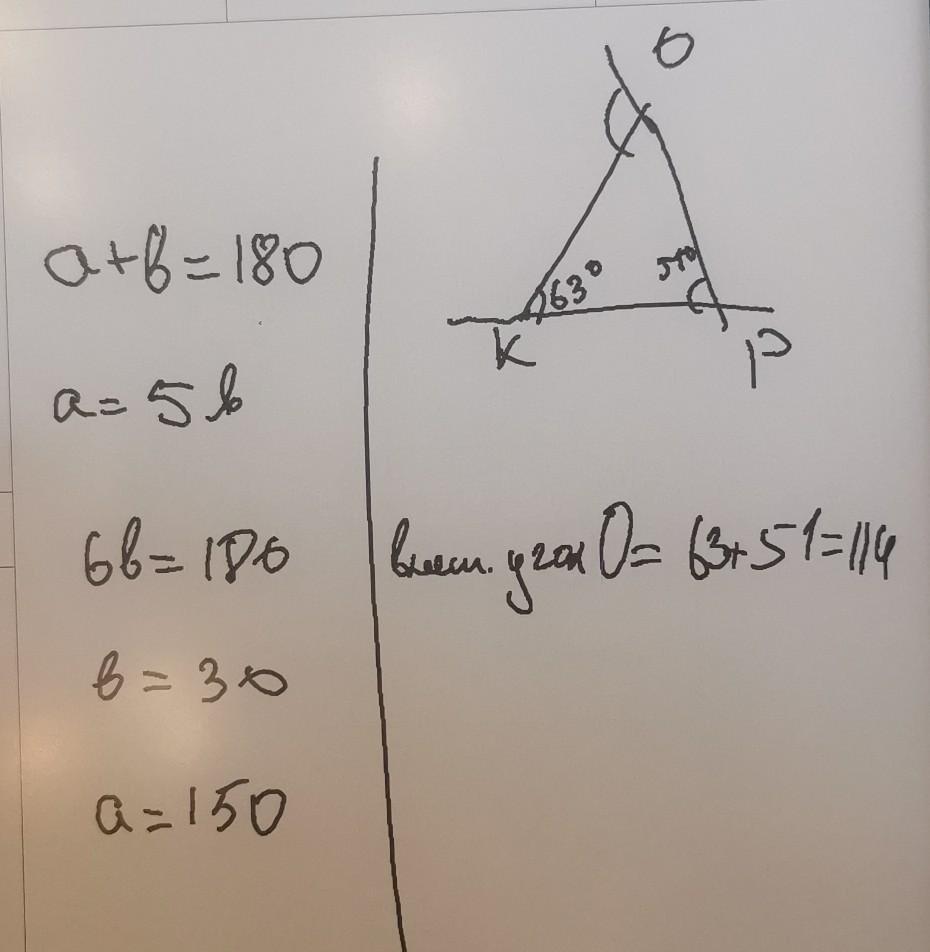 a+b=180
a=5b
6b=180
b=30
a=150
O
63°
51°
K
P
внеш. угол O= 63+51=114